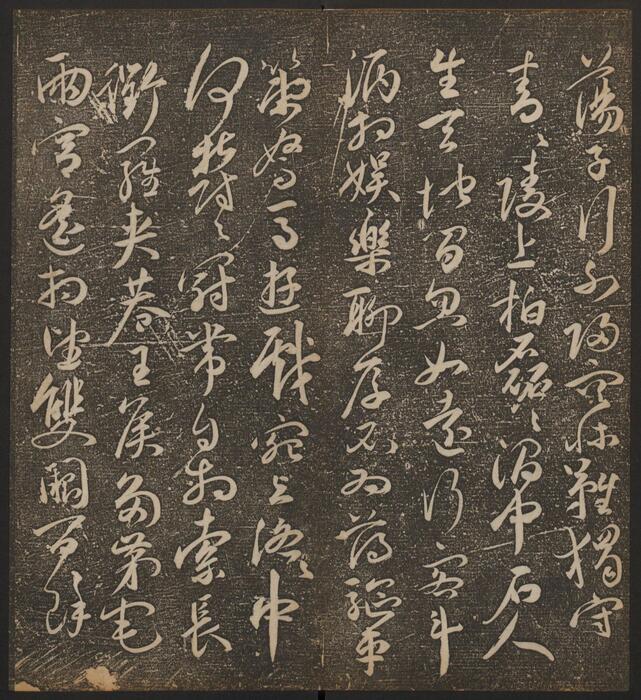 蕩子行不歸空床難獨守
青〻陵上柏磊〻澗中石人
生天地間忽如遠行客斗
酒相娛樂聊厚不為薄驅車
策駑馬遊戲宛與洛〻中
何鬱〻冠帶自相索長
衢羅夾巷王侯多第宅
兩宮遙相望雙闕百餘